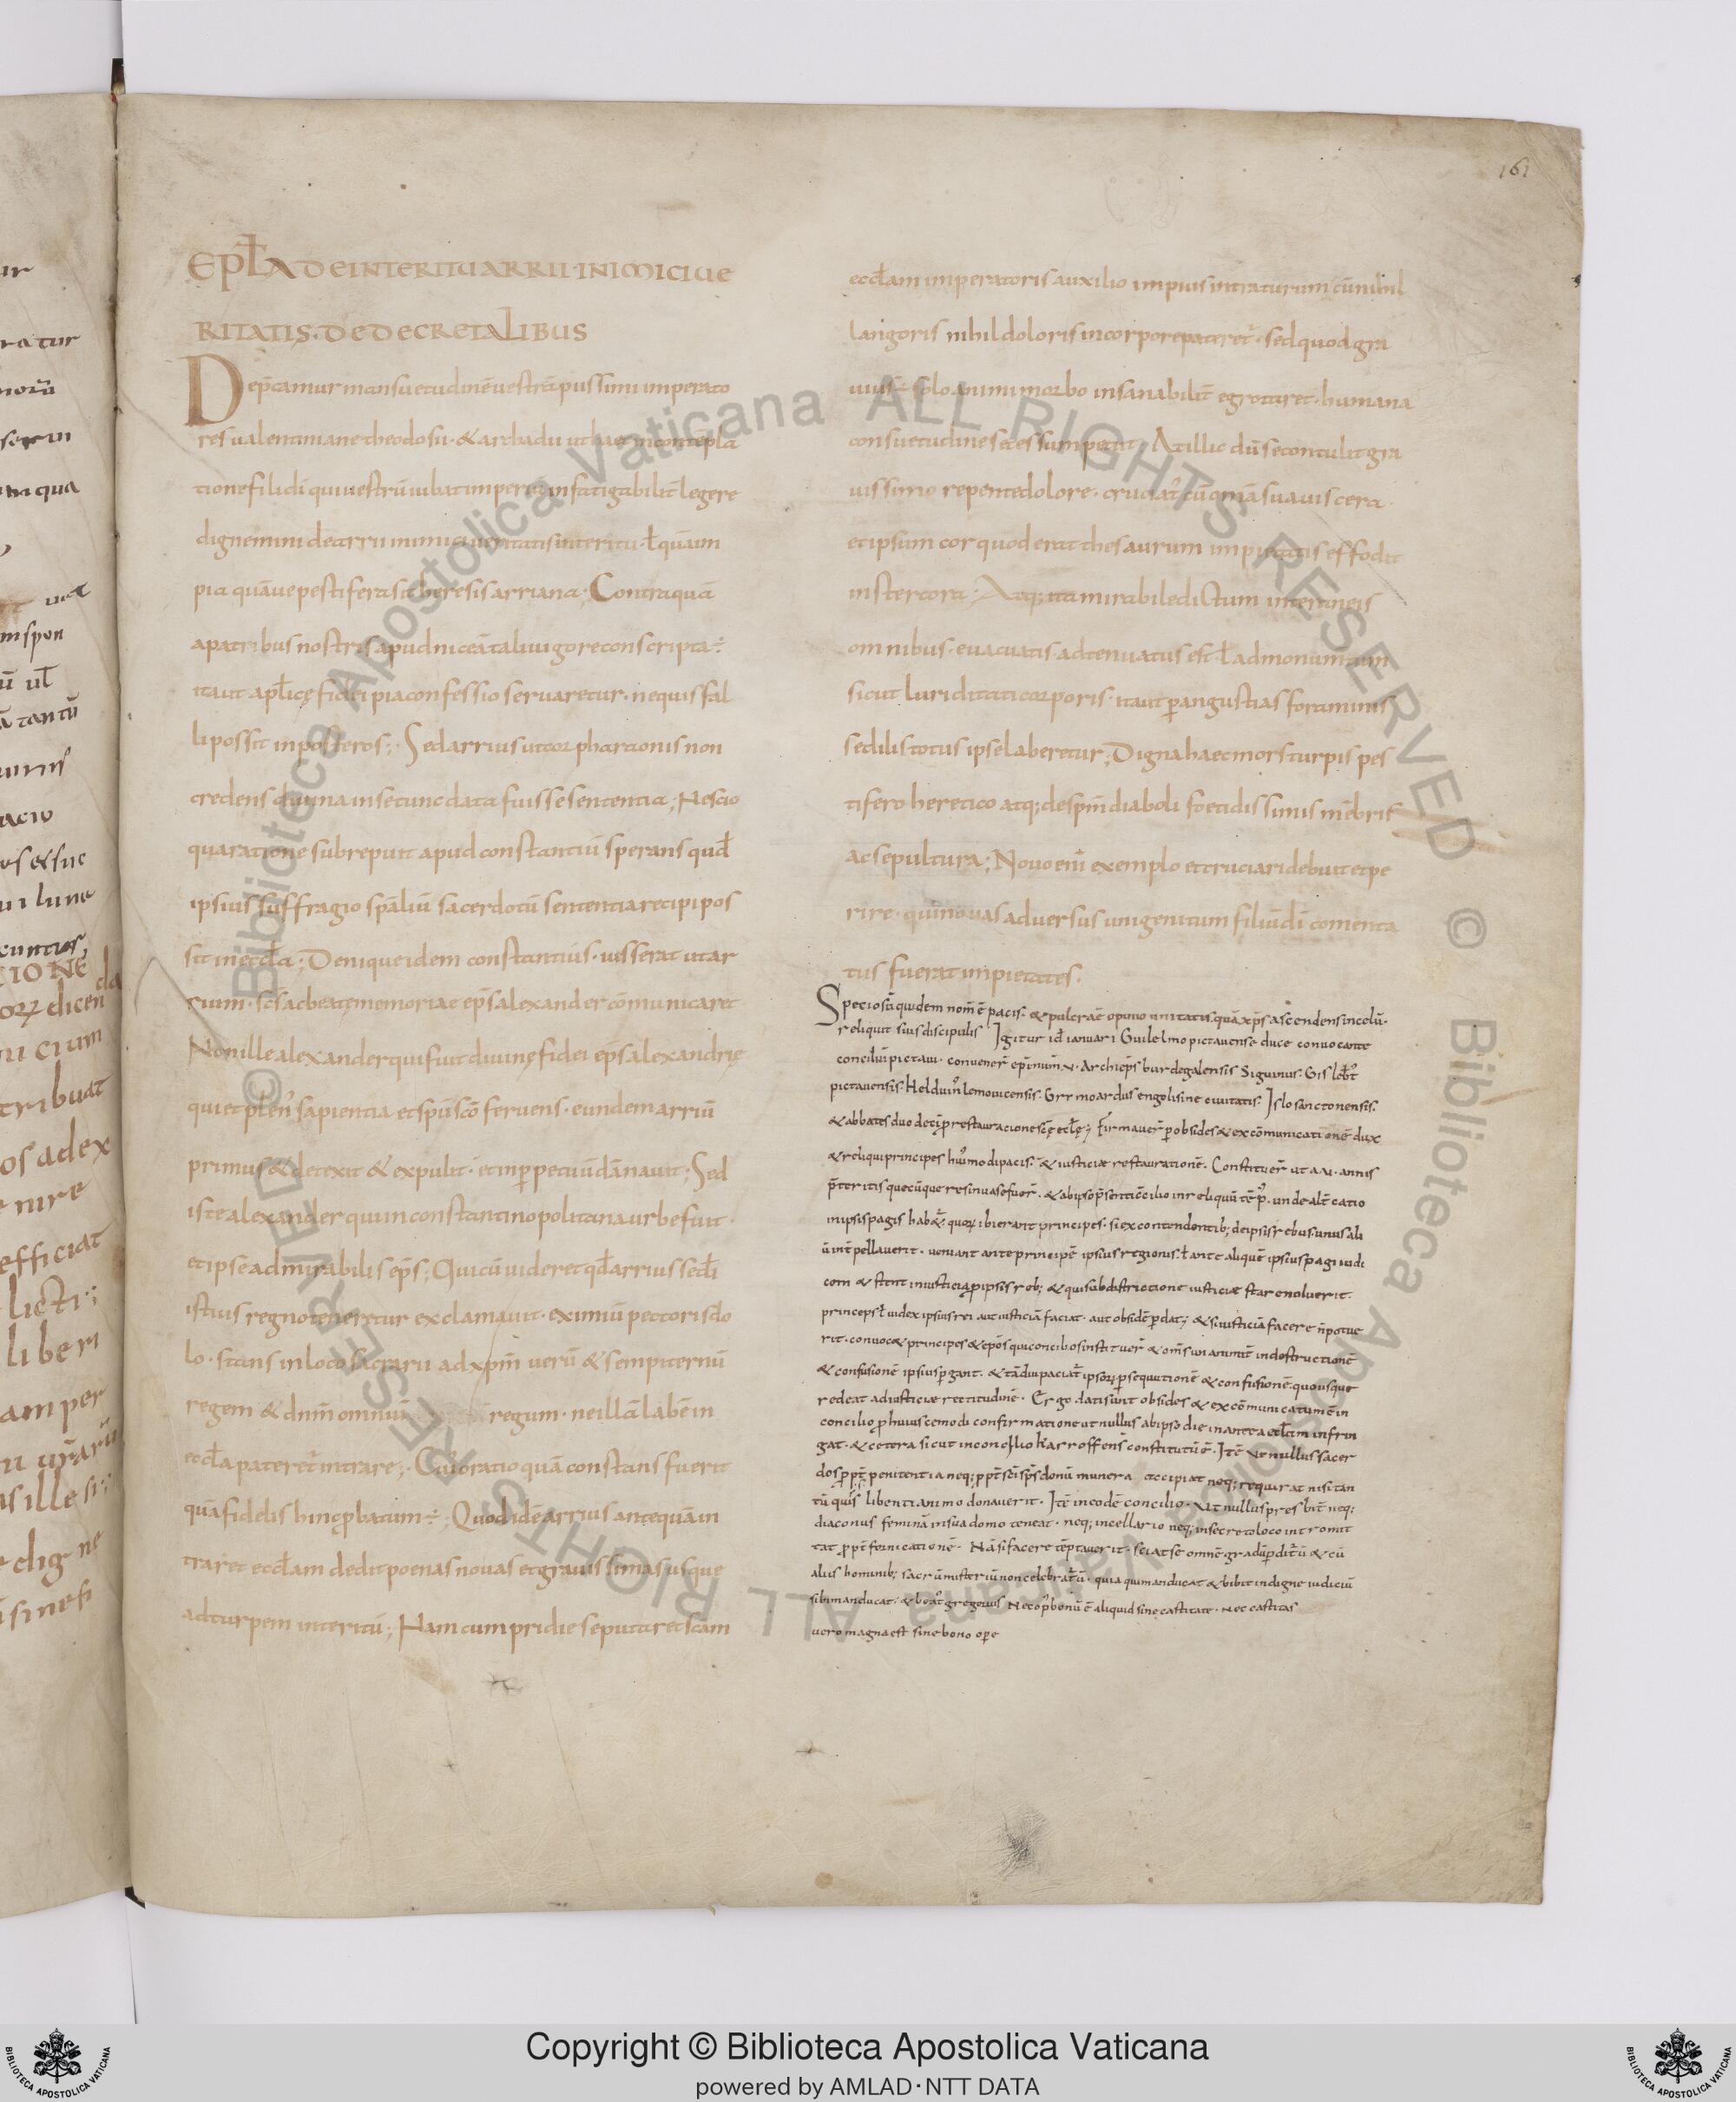 161
EPL̄A DE INTERITU ARRII INIMICI UE
RITATIS. DE DECRETALIBUS
Dep̄camur mansuetudinē uestrā piissimi imperato
res ualentiniane theodosii · & archadii ut haec in contēpla
tione filii dī qui uestrū iubat imperiū infatigabilit̄ legere
dignemini de arrii inimici ueritatis interitu · ł quā im
pia quāue pestifera sit heresis arriana · Contra quā
a patribus nostris apud niceā tali uigore conscripta ÷
ita ut apl̄icę fidei pia confessio seruaretur · ne quis fal
li possit in posteros ; Sed arrius ut cor pharaonis non
credens diuina in se tunc data fuisse sententia ; Nescio
qua ratione subrepuit apud constantiū sperans qud̄
ipsius suffragio sp̄aliū sacerdotū sententia recipi pos
sit in eccl̄a ; Denique idem constantius · iusserat ut ar
rium · sc̄s ac beatę memoriae ep̄s alexander cōmunicaret
Non ille alexander qui fuit diuinę fidei ep̄s alexandrię
qui et plen᾽ sapientia et sp̄u sc̄o feruens · eundem arriū
primus & detexit & expulit · et in perpetuū dānauit ; Sed
iste alexander qui in constantinopolitana urbe fuit ·
et ipse admirabilis ep̄s ; Qui cū uideret qd̄ arrius sedl̄i
istius regno teneretur exclamauit · eximiū pectoris do
lo · stans in loco sacrarii ad xp̄m uerū & sempiternū
regem & dn̄m omniū regum · ne illā labē in
eccl̄a pateret᾽ intrare ; Cui oratio quā constans fuerit
quā fidelis hinc ꝓbatum ÷ ; Quod idē arrius antequā in
traret eccl̄am dedit poenas nouas et grauissimas usque
ad turpem interitū ; Nam cum pridie se putaret sc̄am
eccl̄am imperatoris auxilio impius intraturum cū nihil
langoris nihil doloris in corpore pateret᾽ · sed quod gra
uius ÷ solo animi morbo insanabilit̄ egrotaret · humana
consuetudine secessum petiit ; At illic dū se contulit gra
uissimo repente dolore · cruciat᾽ cū om̄ia sua uiscera ·
et ipsum cor quod erat thesaurum impietatis effodit
in stercora ; Atq; ita mirabile dictum interaneis
omnibus · euacuatis · adtenuatus est · ł ad monumtum
sicut luriditati corporis · ita ut ꝑ angustias foraminis
sedilis totus ipse laberetur ; Digna haec mors turpis pes
tifero heretico atq; despm̄ diaboli foetidissimis mēbris
ac sepultura ; Nouo eni᾽ exemplo et cruciari debuit et pe
rire · qui nouas aduersus unigenitum filiū dī comenta
tus fuerat impietates.
Speciosū quidem nom̄ ē pacis · & pulcra ē opinio unitatis · quā xp̄s ascendens in celū ·
reliquit suis discipulis Igitur id̄ ianuari Guilelmo pictauense duce conuocante
conciliū pictaui · conuener̄ ep̄i num̄ · v · Archiep̄s burdegalensis Siguinus · Gislebt᾽
pictauensis · Helduin᾽ lemouicensis · Grimoardus engolisine ciuitatis · Islo sanctonensis ·
& abbates duo decī ꝓ restauracione scę eclę ; Firmauer̄ ꝑ obsides & excōmunicationē dux
& reliqui principes hui᾽modi pacis · & iusticiae restaurationē · Constituer̄ ut a · v · annis
p̄teritis quecūque res inuase fuer̄ · & ab ipso p̄senti c̄cilio in reliquū tēp᾽ · unde alt̄catio
in ipsis pagis hab&᾽ quoꝝ ibi erant principes · si ex contendentib; de ipsis rebus · unus ali
ū int̄pellauerit · ueniant ante principē ipsius regionis · ł ante aliquē ipsius pagi iudi
cem & stent in iusticia ꝑ ipsis reb; & qui sub districtione iusticiae stare noluerit ·
princeps ł iudex ipsius rei aut iusticiā faciat · aut obsidē ꝑdat ; & si iusticiā facere n̄ potue
rit · conuoc& principes & ep̄os qui concil̄ios instituer̄ & om̄s unanimit̄ in destructionē
& confusionē ipsius ꝑgant · & tādiu paciat᾽ ipsoꝝ ꝑsequutionē & confusionē · quousque
redeat ad iusticiae rectitudinē · Ergo dati sunt obsides & excōmunicatum ē in
concilio ꝓ huiuscemodi confirmatione ut nullus ab ipso die in antea ecl̄am infrin
gat · & cetera sicut in concilio karroffens᾽ constitutū ē · Itē ut nullus sacer
dos ꝓpt̄ penitentia neq; ꝓpt̄ sci sp̄s donū munera accipiat neq; requirat nisi tan
tū quis libenti animo donauerit · Itē in eodē concilio · Vt nullus presbit̄ neq;
diaconus feminā in sua domo teneat · neq; in cellario neq; in secreto loco intromit
tat ꝓpt̄ fornicationē · Nā si facere tēptauerit · sciat se omnē gradū ꝑdit᾽ū & cū
aliis hominib; sacrū misteriū non celebrat᾽ū · quia qui manducat & bibit indigne iudiciū
sibi manducat · & beat᾽ gregorius Nec op᾽ bonū ē aliquid sine castitate · nec castitas
uero magna est sine bono opere
© Biblioteca Apostolica Vaticana ALL RIGHTS RESERVED © Biblioteca Apostolica Vaticana ALL RIGHTS RESERVED
Copyright © Biblioteca Apostolica Vaticana
powered by AMLAD・NTT DATA
BIBLIOTECA APOSTOLICA VATICANA
BIBLIOTECA APOSTOLICA VATICANA